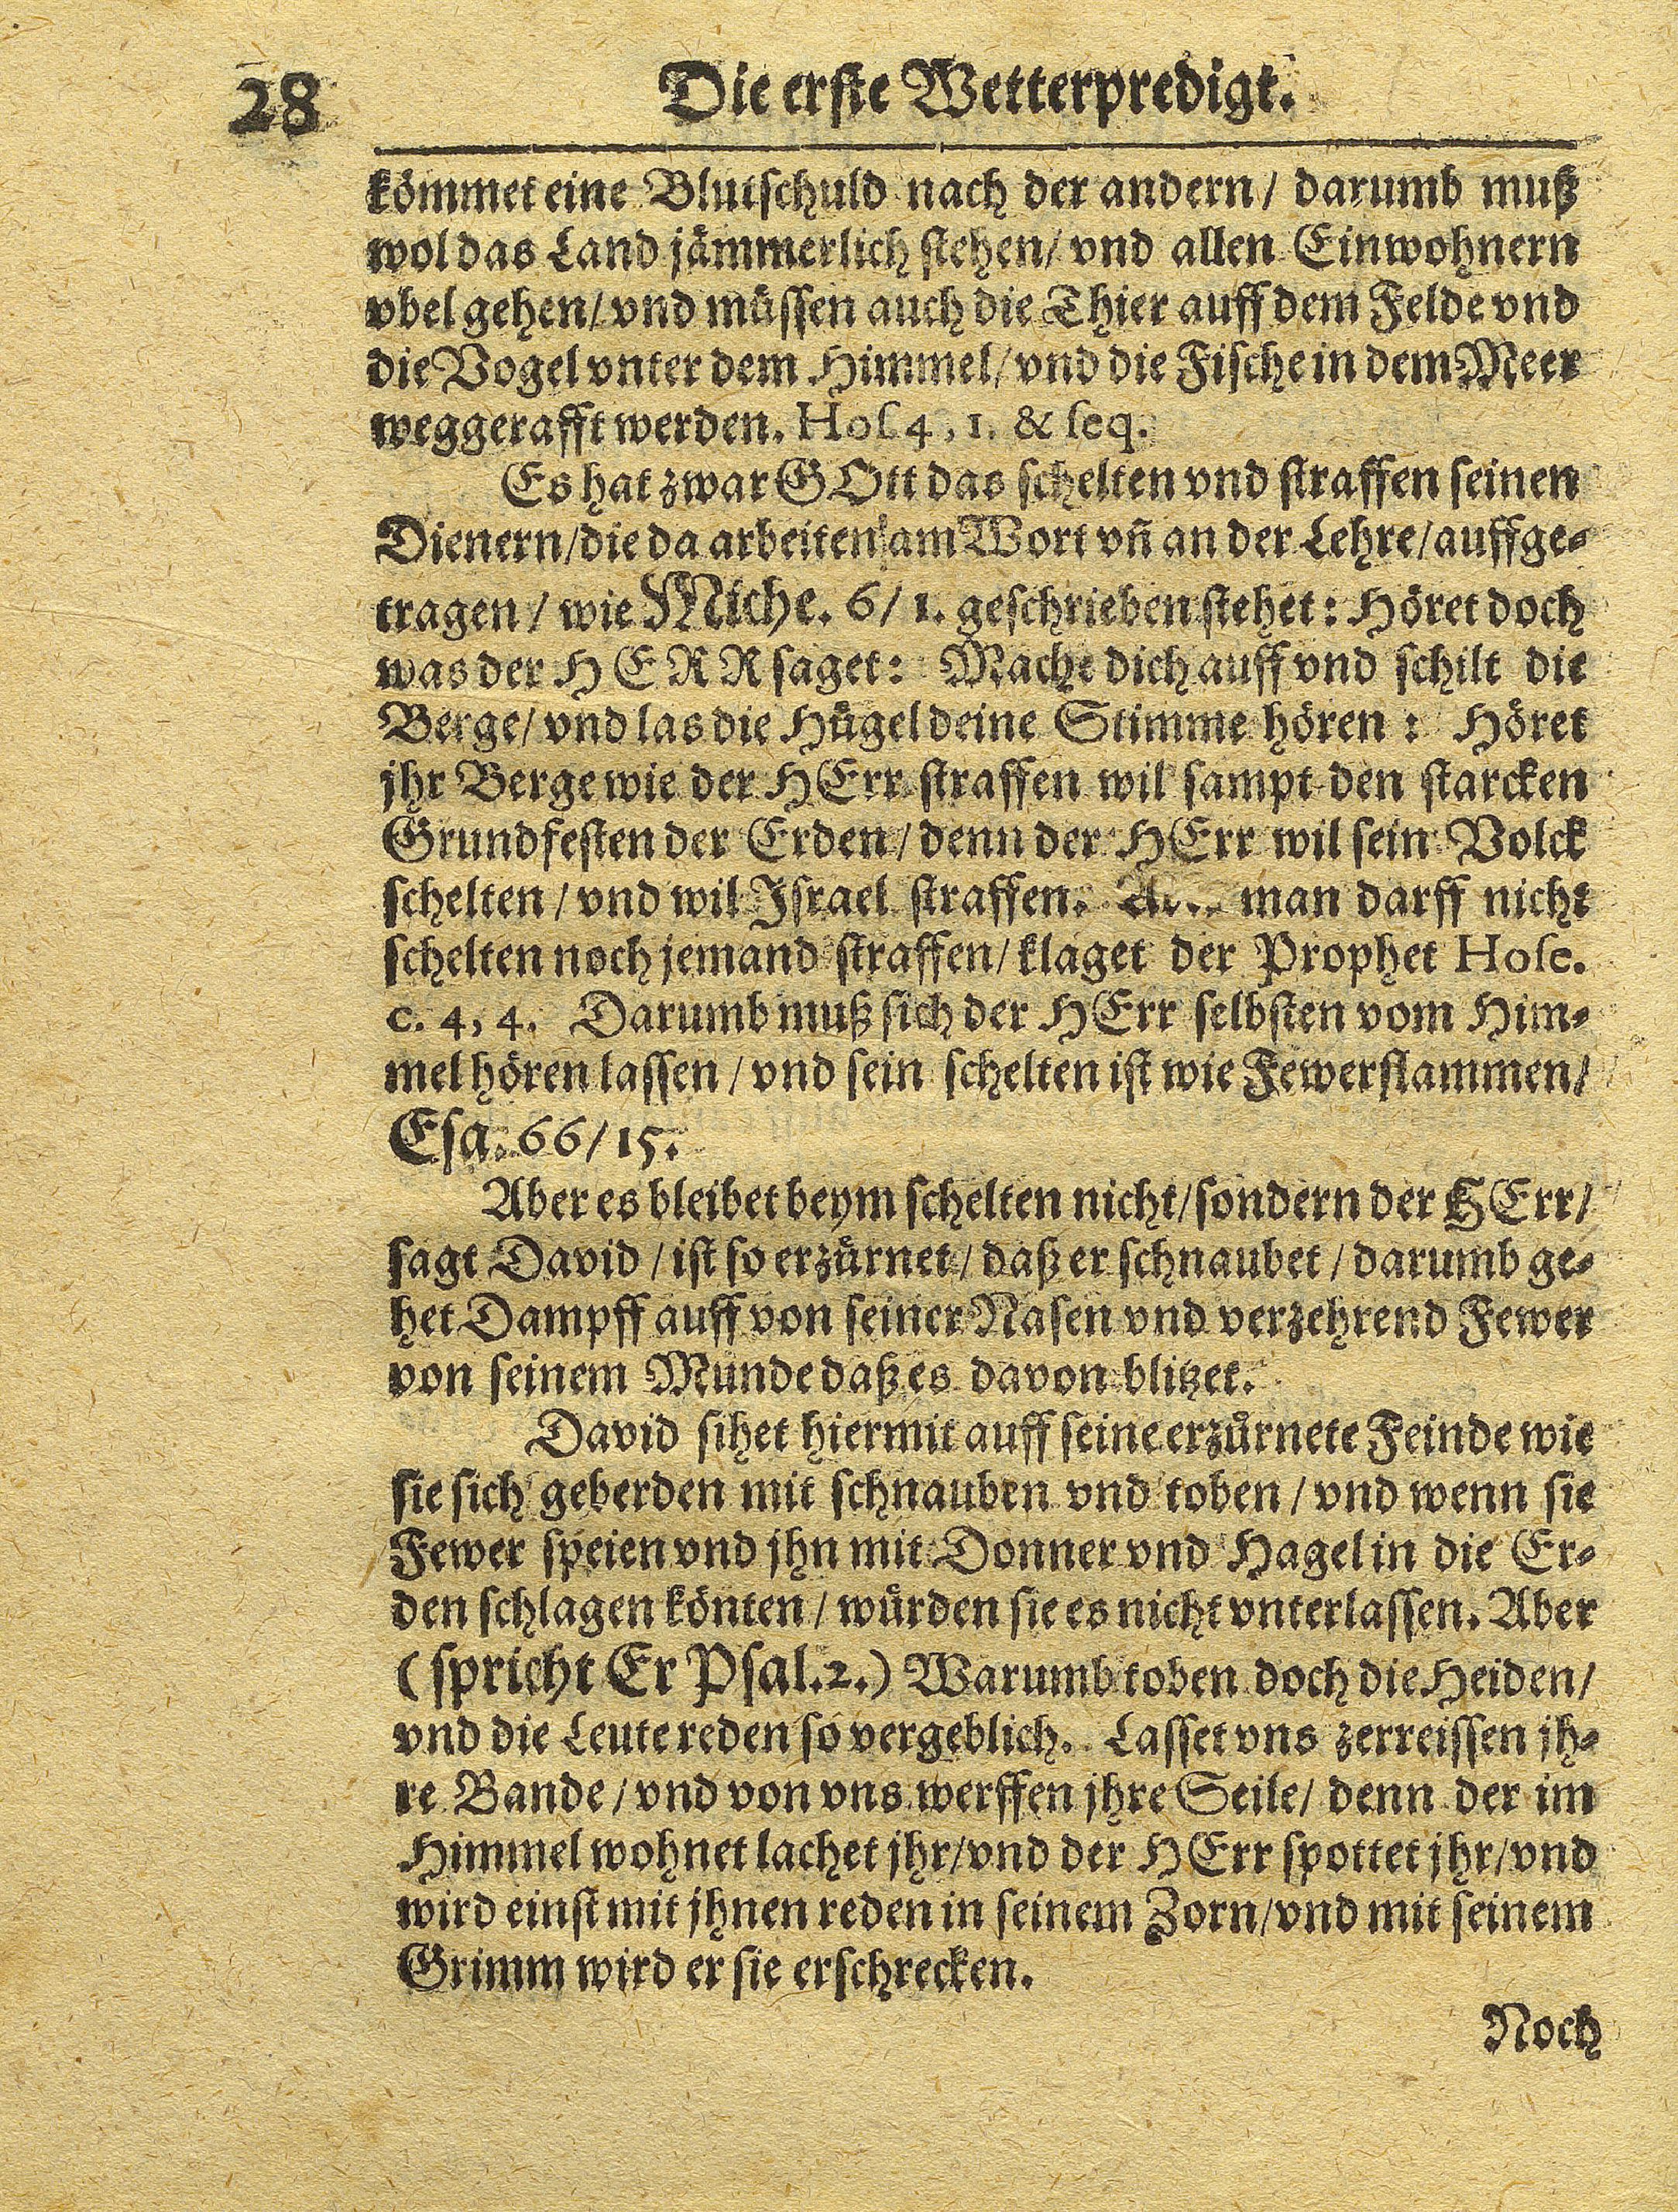 28 Die erste Wetterpredigt.
kömmet eine Blutschuld nach der andern / darumb muß
wol das Land jämmerlich stehen / vnd allen Einwohnern
vbel gehen / vnd müssen auch die Thier auff dem Felde vnd
die Vogel vnter dem Himmel / vnd die Fische in dem Meer
weggerafft werden. Hos. 4, 1. & seq.
Es hat zwar GOtt das schelten vnd straffen seinen
Dienern / die da arbeiten am Wort vñ an der Lehre / auffge-
tragen / wie Miche. 6 / 1. geschrieben stehet: Höret doch
was der HERR saget: Mache dich auff vnd schilt die
Berge / vnd las die Hügel deine Stimme hören: Höret
jhr Berge wie der HErr straffen wil sampt den starcken
Grundfesten der Erden / denn der HErr wil sein Volck
schelten / vnd wil Israel straffen. man darff nicht
schelten noch jemand straffen / klaget der Prophet Hose.
c. 4, 4. Darumb muß sich der HErr selbsten vom Him-
mel hören lassen / vnd sein schelten ist wie Fewerflammen /
Esa. 66 / 15.
Aber es bleibet beym schelten nicht / sondern der HErr /
sagt David / ist so erzürnet / daß er schnaubet / darumb ge-
het Dampff auff von seiner Nasen vnd verzehrend Fewer
von seinem Munde daß es davon blitzet.
David sihet hiermit auff seine erzürnete Feinde wie
sie sich geberden mit schnauben vnd toben / vnd wenn sie
Fewer speien vnd jhn mit Donner vnd Hagel in die Er-
den schlagen könten / würden sie es nicht vnterlassen. Aber
(spricht Er Psal. 2.) Warumb toben doch die Heiden /
vnd die Leute reden so vergeblich. Lasset vns zerreissen jh-
re Bande / vnd von vns werffen jhre Seile / denn der im
Himmel wohnet lachet jhr / vnd der HErr spottet jhr / vnd
wird einst mit jhnen reden in seinem Zorn / vnd mit seinem
Grimm wird er sie erschrecken.
Noch